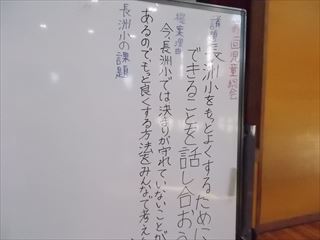 第一回児童総会
議題 長洲小をもっとよくするために
できることを話し合おう
提案理由
今、長洲小では決まりが守れていないことが
あるのでもっと良くする方法をみんなで考え
長洲小の課題